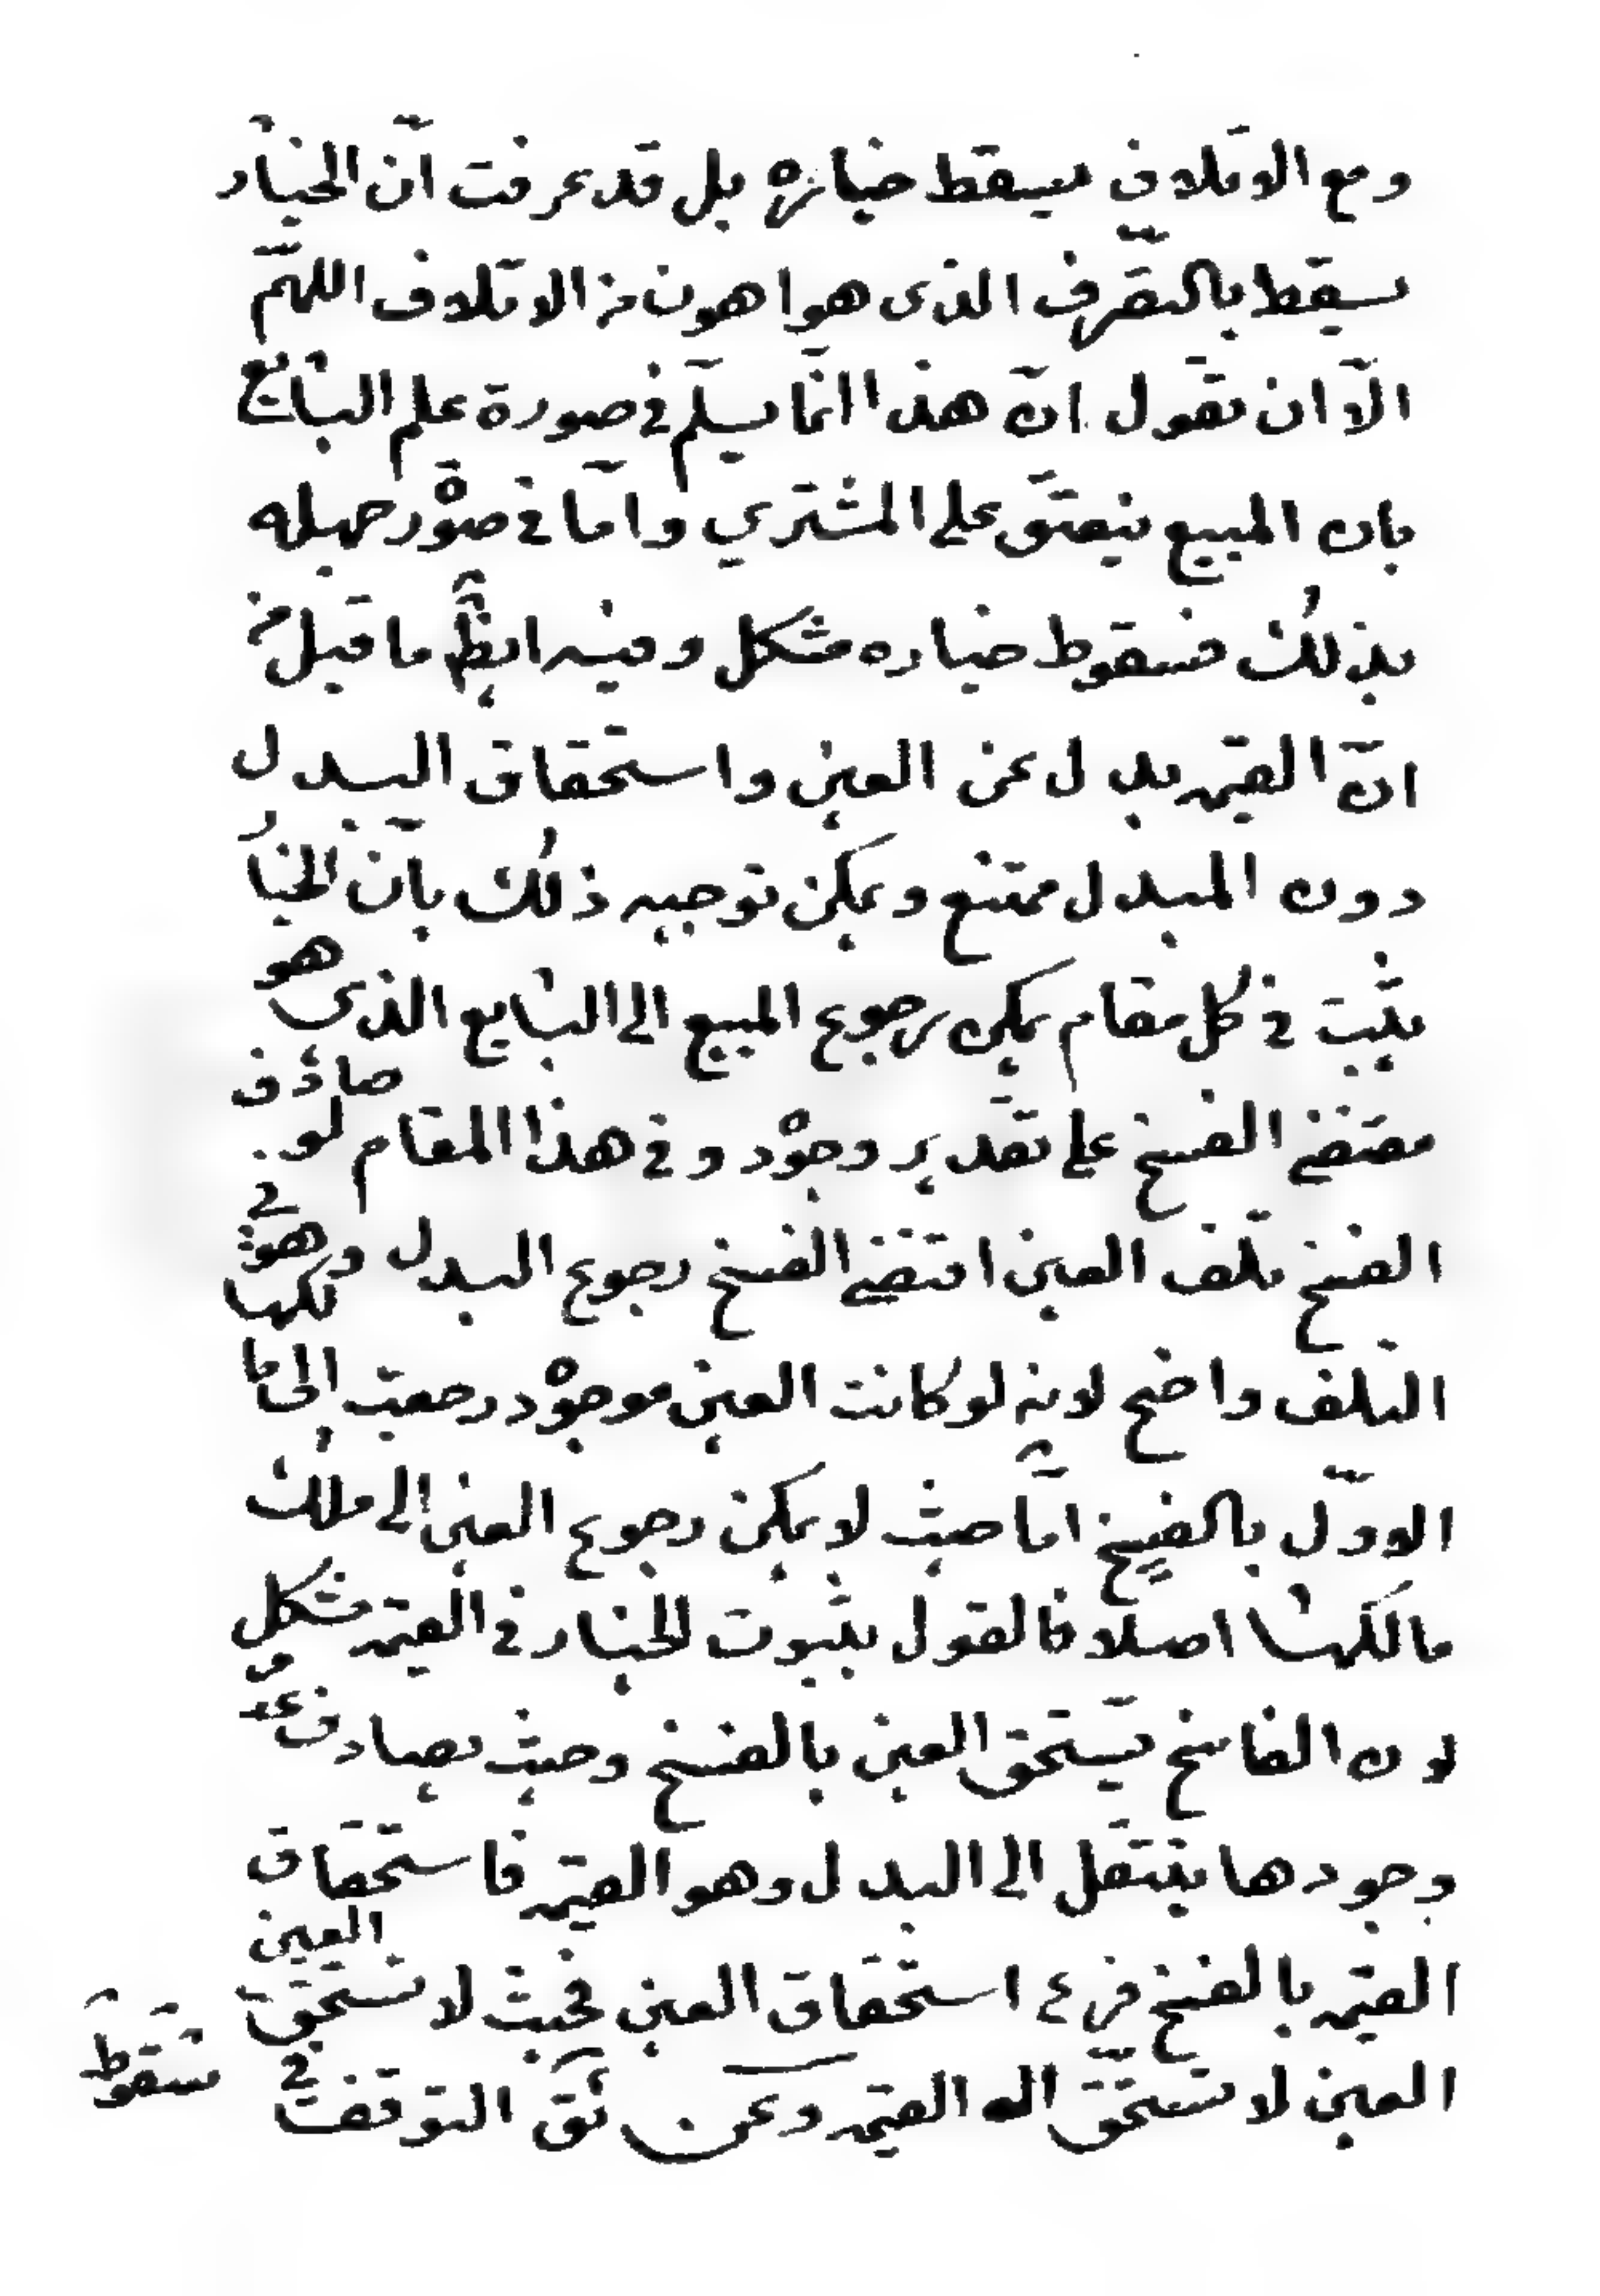 ومع الاتلاف يسقط خياره بل قد عرفت انّ الخيار
يسقط بالتصّرف الذى هو اهون من الاتلاف اللهمّ
الاّ ان نقول انّ هذا انّما يسلّم في صورة علم البايع
بان المبيع ينعتق على المشتري وامّا في صورة جهله
بذلك فسقوط خياره مشكل وفيه ايضً ما قيل من
انّ القيمة بدل عن العين واستحقاق البدل
دون المبدل ممتنع ويمكن توجيه ذلك بانّ الخيار
يثبت في كل مقام يمكن رجوع المبيع الى البايع الذى هو
مقتضى الفسخ على تقدير وجوده وفي هذا المقام لو صادف
الفسخ تلف العين اقتضى الفسخ رجوع البدل وهو في
التلف واضح لانه لو كانت العين موجوده رجعت الى مالكها
الاوّل بالفسخ امّا حيث لا يمكن رجوع العين الى ملك
مالكها اصلا فالقول بثبوت الخيار في القيمة مشكل
لان الفاسخ يستحق العين بالفسخ وحيث يصادف عدم
وجودها ينتقل الى البدل وهو القيمة فاستحقاق
القيمة بالفسخ فرع استحقاق العين فحيث لا تستحق العين
العين لا تستحقّ القيمة ونحن نق التوقف في
سقوط